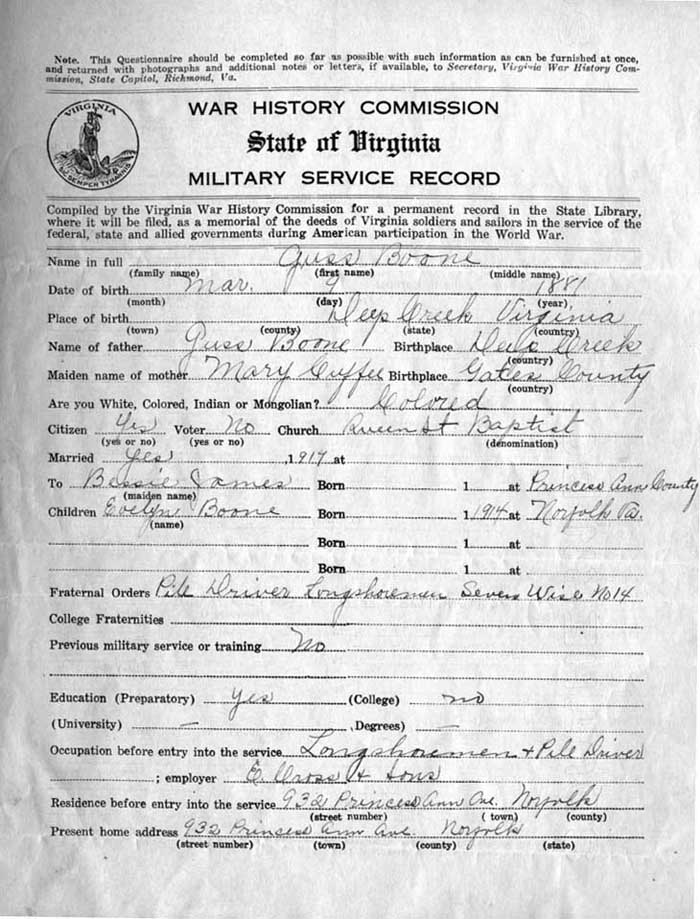 Note. This Questionnaire should be completed so far as possible with such information as can be furnished at once,
and returned with photographs and additional notes or letters, if available, to Secretary, Virginia War History Com-
mission, State Capitol, Richmond, Va.
VIRGINIA
SIC SEMPER TYRANNIS
WAR HISTORY COMMISSION
State of Virginia
MILITARY SERVICE RECORD
Compiled by the Virginia War History Commission for a permanent record in the State Library,
where it will be filed, as a memorial of the deeds of Virginia soldiers and sailors in the service of the
federal, state and allied governments during American participation in the World War.
Name in full Guss Boone
(family name) (first name) (middle name)
Date of birth Mar. 9 1881
(month) (day) (year),
Place of birth Deep Creek Virginia
(town) (county) (state) (country)
Name of father Guss Boone Birthplace Deep Creek
(country)
Maiden name of mother Mary Cuffee Birthplace Gates County
(country)
Are you White, Colored, Indian or Mongolian? Colored
Citizen Yes Voter No Church Queen St Baptist
(yes or no) (yes or no) (denomination)
Married Yes , 1917 at
To Bessie James Born 1 at Princess Ann County
(maiden name)
Children Evelyn Boone Born 1 1914 at Norfolk Va.
(name)
Born 1 at
Born 1 at
Fraternal Orders Pile Driver Longshoremen Seven Wise No 14
College Fraternities
Previous military service or training No
Education (Preparatory) Yes (College) no
(University) — , Degrees) —
Occupation before entry into the service Longshoremen + Pile Driver
; employer & Sons
Residence before entry into the service 932 Princess Ann Ave. Norfolk
(street number) ( town) (county)
Present home address 932 Princess Ann Ave. Norfolk
(street number) (town) (county) (state)